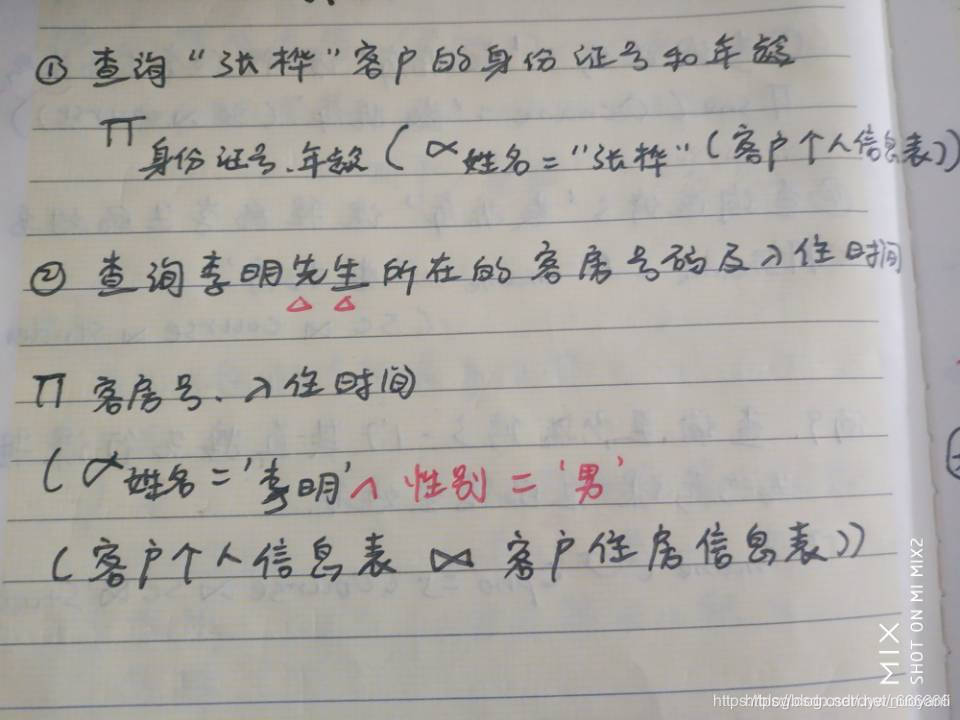 ① 查询“张桦”客户的身份证号和年龄
∏ 身份证号、年龄 ( ∝ 姓名=“张桦” (客户个人信息表))
② 查询李明先生所在的客房号码及入住时间
△ △
∏ 客房号、入住时间
( ∝ 姓名='李明' ∧ 性别 = '男'
(客户个人信息表 ⋈ 客户住房信息表))
MIX
SHOT ON MI MIX2